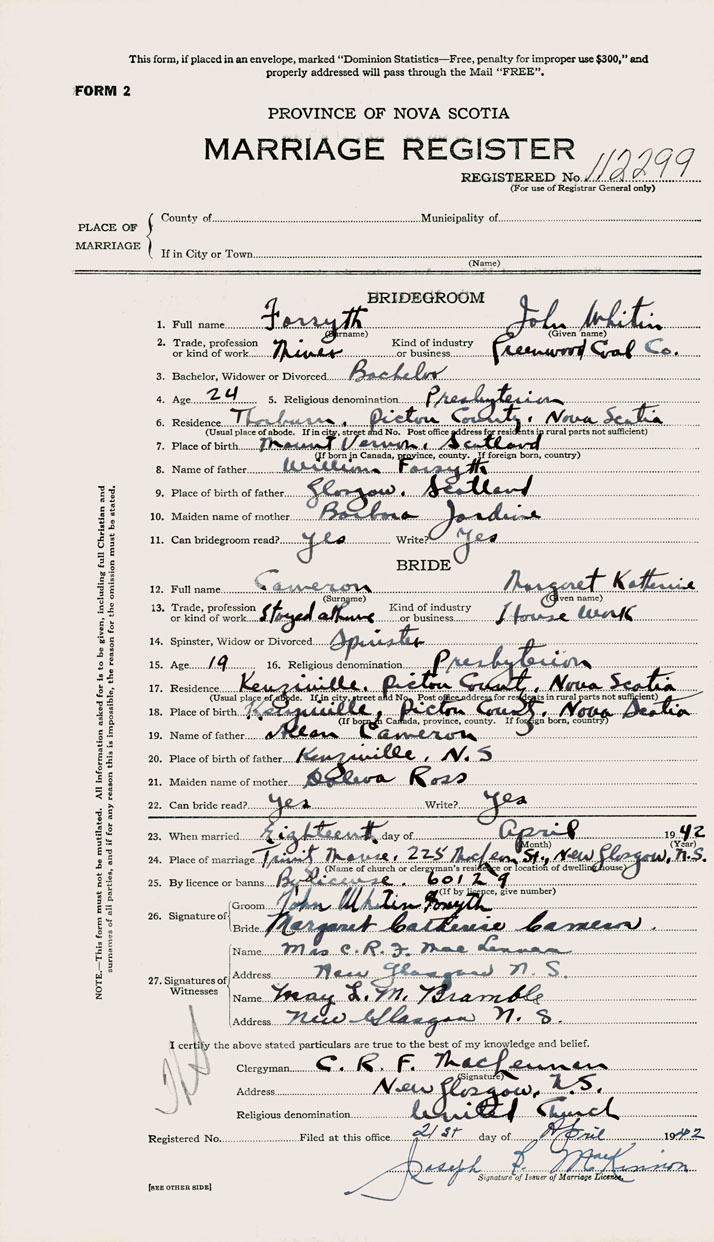 This form, if placed in an envelope, marked "Dominion Statistics—Free, penalty for improper use $300," and
properly addressed will pass through the Mail "FREE".
FORM 2
PROVINCE OF NOVA SCOTIA
MARRIAGE REGISTER
REGISTERED No. 112299
(For use of Registrar General only)
PLACE OF MARRIAGE
County of Municipality of
If in City or Town
(Name)
BRIDEGROOM
1. Full name Forsyth John Whitin
(Surname) (Given name)
2. Trade, profession or kind of work Miner Kind of industry or business Greenwood Coal Co.
3. Bachelor, Widower or Divorced Bachelor
4. Age 24 5. Religious denomination Presbyterian
6. Residence Thorburn, Pictou County, Nova Scotia
(Usual place of abode. If in city, street and No. Post office address for residents in rural parts not sufficient)
7. Place of birth Mount Vernon, Scotland
(If born in Canada, province, county. If foreign born, country)
8. Name of father William Forsyth
9. Place of birth of father Glasgow, Scotland
10. Maiden name of mother Barbara Jardine
11. Can bridegroom read? Yes Write? Yes
BRIDE
12. Full name Cameron Margaret Katherine
(Surname) (Given name)
13. Trade, profession or kind of work Stayed at home Kind of industry or business House Work
14. Spinster, Widow or Divorced Spinster
15. Age 19 16. Religious denomination Presbyterian
17. Residence Kenziville, Pictou County, Nova Scotia
(Usual place of abode. If in city, street and No. Post office address for residents in rural parts not sufficient)
18. Place of birth Kenziville, Pictou County, Nova Scotia
(If born in Canada, province, county. If foreign born, country)
19. Name of father Cameron
20. Place of birth of father Kenziville, N.S
21. Maiden name of mother Ross
22. Can bride read? Yes Write? Yes
23. When married Eighteenth day of April 1942
(Month) (Year)
24. Place of marriage 225 McLean St., New Glasgow, N.S.
(Name of church or clergyman's residence or location of dwelling house)
25. By licence or banns By License. 60129
(If by licence, give number)
26. Signature of
Groom John Whitin Forsyth
Bride Margaret Catherine Cameron.
27. Signatures of Witnesses
Name Mrs C. R. F. MacLennan
Address New Glasgow N. S.
Name May L. M. Bramble
Address New Glasgow N. S.
I certify the above stated particulars are true to the best of my knowledge and belief.
Clergyman C. R. F. MacLennan
(Signature)
Address New Glasgow, N.S.
Religious denomination United Church
Registered No. Filed at this office 21st day of April 1942
Joseph MacKinnon
Signature of Issuer of Marriage License.
[SEE OTHER SIDE]
NOTE.—This form must not be mutilated. All information asked for is to be given, including full Christian and
surnames of all parties, and if for any reason this is impossible, the reason for the omission must be stated.